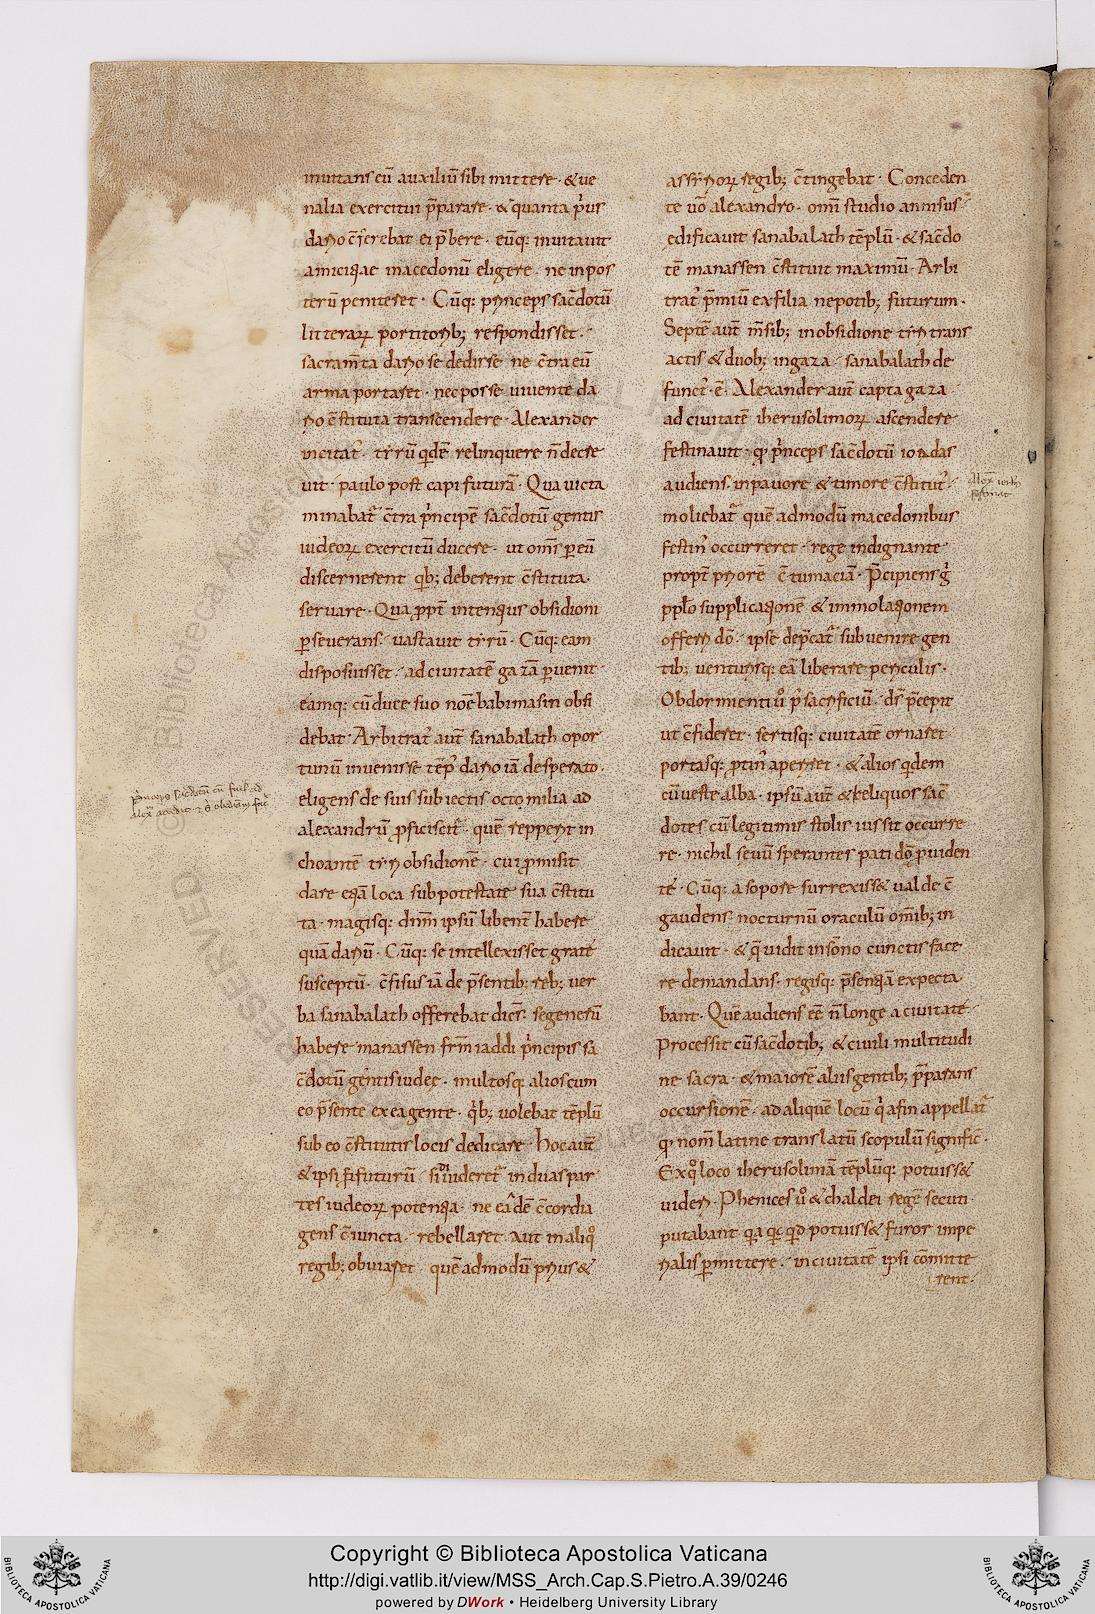 inuitans cū auxiliū sibi mittere · & ue
nalia exercitui p̄parare · & quanta p̄us
dario cōferebat ei p̄bere · eūq; inuitauit
amicicias macedonū eligere · ne in pos
terū peniteret · Cūq; princeps sacdotū
litterarꝝ portitorib; respondisset ·
sacram̄ta dario se dedisse ne c̄tra eū
arma portaret · nec posse uiuente da
rio c̄stituta transcendere · Alexander
incitat᷒ · tirū qidē relinquere n̄ decre
uit · paulo post capi futurā · Qua uicta
minabat᷒ c̄tra p̄ncipē sac̄dotū gentis
iudeorꝝ exercitū ducere · ut om̄s p eū
discernerent qib; deberent c̄stituta
seruare · Qua ꝓpt̄ intentius obsidioni
ꝑseuerans · uastauit tirū · Cūq; eam
disposuisset · ad ciuitatē gazā ꝑuenit ·
eamq; cū duce suo noē babimasin obsi
debat · Arbitrat᷒ aut̄ sanabalath opor
tunū inuenisse tēp᷒ dario iā desperato ·
eligens de suis subiectis octo milia ad
alexandrū ꝓficiscit᷒ · quē repperit in
choantē tiri obsidionē · cui ꝓmisit
dare etiā loca sub potestate sua c̄stitu
ta · magisq; dn̄m ipsū libent᷒ habere
quā dariū · Cūq; se intellexisset grate
susceptū · c̄fisus iā de p̄sentib; reb; uer
ba sanabalath offerebat dicēs · se generū
habere manassen fr̄m iaddi p̄ncipis sa
c̄dotū gentis iudeę · multosq; alios cum
eo p̄sente ex ea gente · qib; uolebat tēplū
sub eo c̄stitutis locis dedicare · hoc aut̄
& ipsi fifuturū · si diuideret᷒ in duas par
tes iudeorꝝ potentia · ne eadē c̄cordia
gens c̄iuncta · rebellaret · aut in aliqo
regib; obuiaret · quē admodū prius &
assiriorꝝ regib; c̄tingebat · Conceden
te uō alexandro · omi studio annisus
edificauit sanabalath tēplū · & sac̄do
tē manassen c̄stituit maximū · Arbi
trat᷒ p̄miū ex filia nepotib; futurum ·
Septē aut̄ m̄sib; in obsidione tiri trans
actis & duob; in gaza · sanabalath de
funct᷒ · ē · Alexander aut̄ capta gaza
ad ciuitatē iherusolimorꝝ ascendere
festinauit · qđ p̄nceps sac̄dotū ioadas
audiens · in pauore & timore c̄stitut᷒ ·
moliebat᷒ quē admodū macedonibus
festin᷒ occurreret · rege indignante
propt̄ priorē c̄tumaciā · P̄cipiens g̊
pplo supplicationē & immolationem
offerri dō · ipse dep̄cat᷒ subuenire gen
tib; uenturisq; eā liberare periculis ·
Obdormienti ů p᷒ sacrificiū · ds̄ p̄cepit
ut c̄fideret · sertisq; ciuitatē ornaret
portasq; ꝓtin᷒ aperiret · & alios qidem
cū ueste alba · ipsū aut̄ & reliquos sac̄
dotes cū legitimis stolis iussit occurre
re · nichil seuū sperantes pati dō ꝓuiden
te · Cūq; a sopore surrexiss& ualde c̄
gaudens · nocturnū oraculū omib; in
dicauit · & q̄ uidit in sōno cunctis face
re demandans · regisq; p̄sentiā expecta
bant · Quē audiens eē n̄ longe a ciuitate
Processit cū sac̄dotib; & ciuili multitudi
ne sacra · & maiorē aliis gentib; p̄parans
occursionē · ad aliquē locū qi safin appellat᷒
qđ nom̄ latine translatū scopulū signific̄ ·
Ex qo loco iherusolimā tēplūq; potuiss&
uideri · Phenices ů & chaldei regē secuti
putabant qia qicqid potuiss& furor impe
rialis ꝑmittere · in ciuitatē ipsi cōmitte
rent ·
Copyright © Biblioteca Apostolica Vaticana
http://digi.vatlib.it/view/MSS_Arch.Cap.S.Pietro.A.39/0246
powered by DWork • Heidelberg University Library